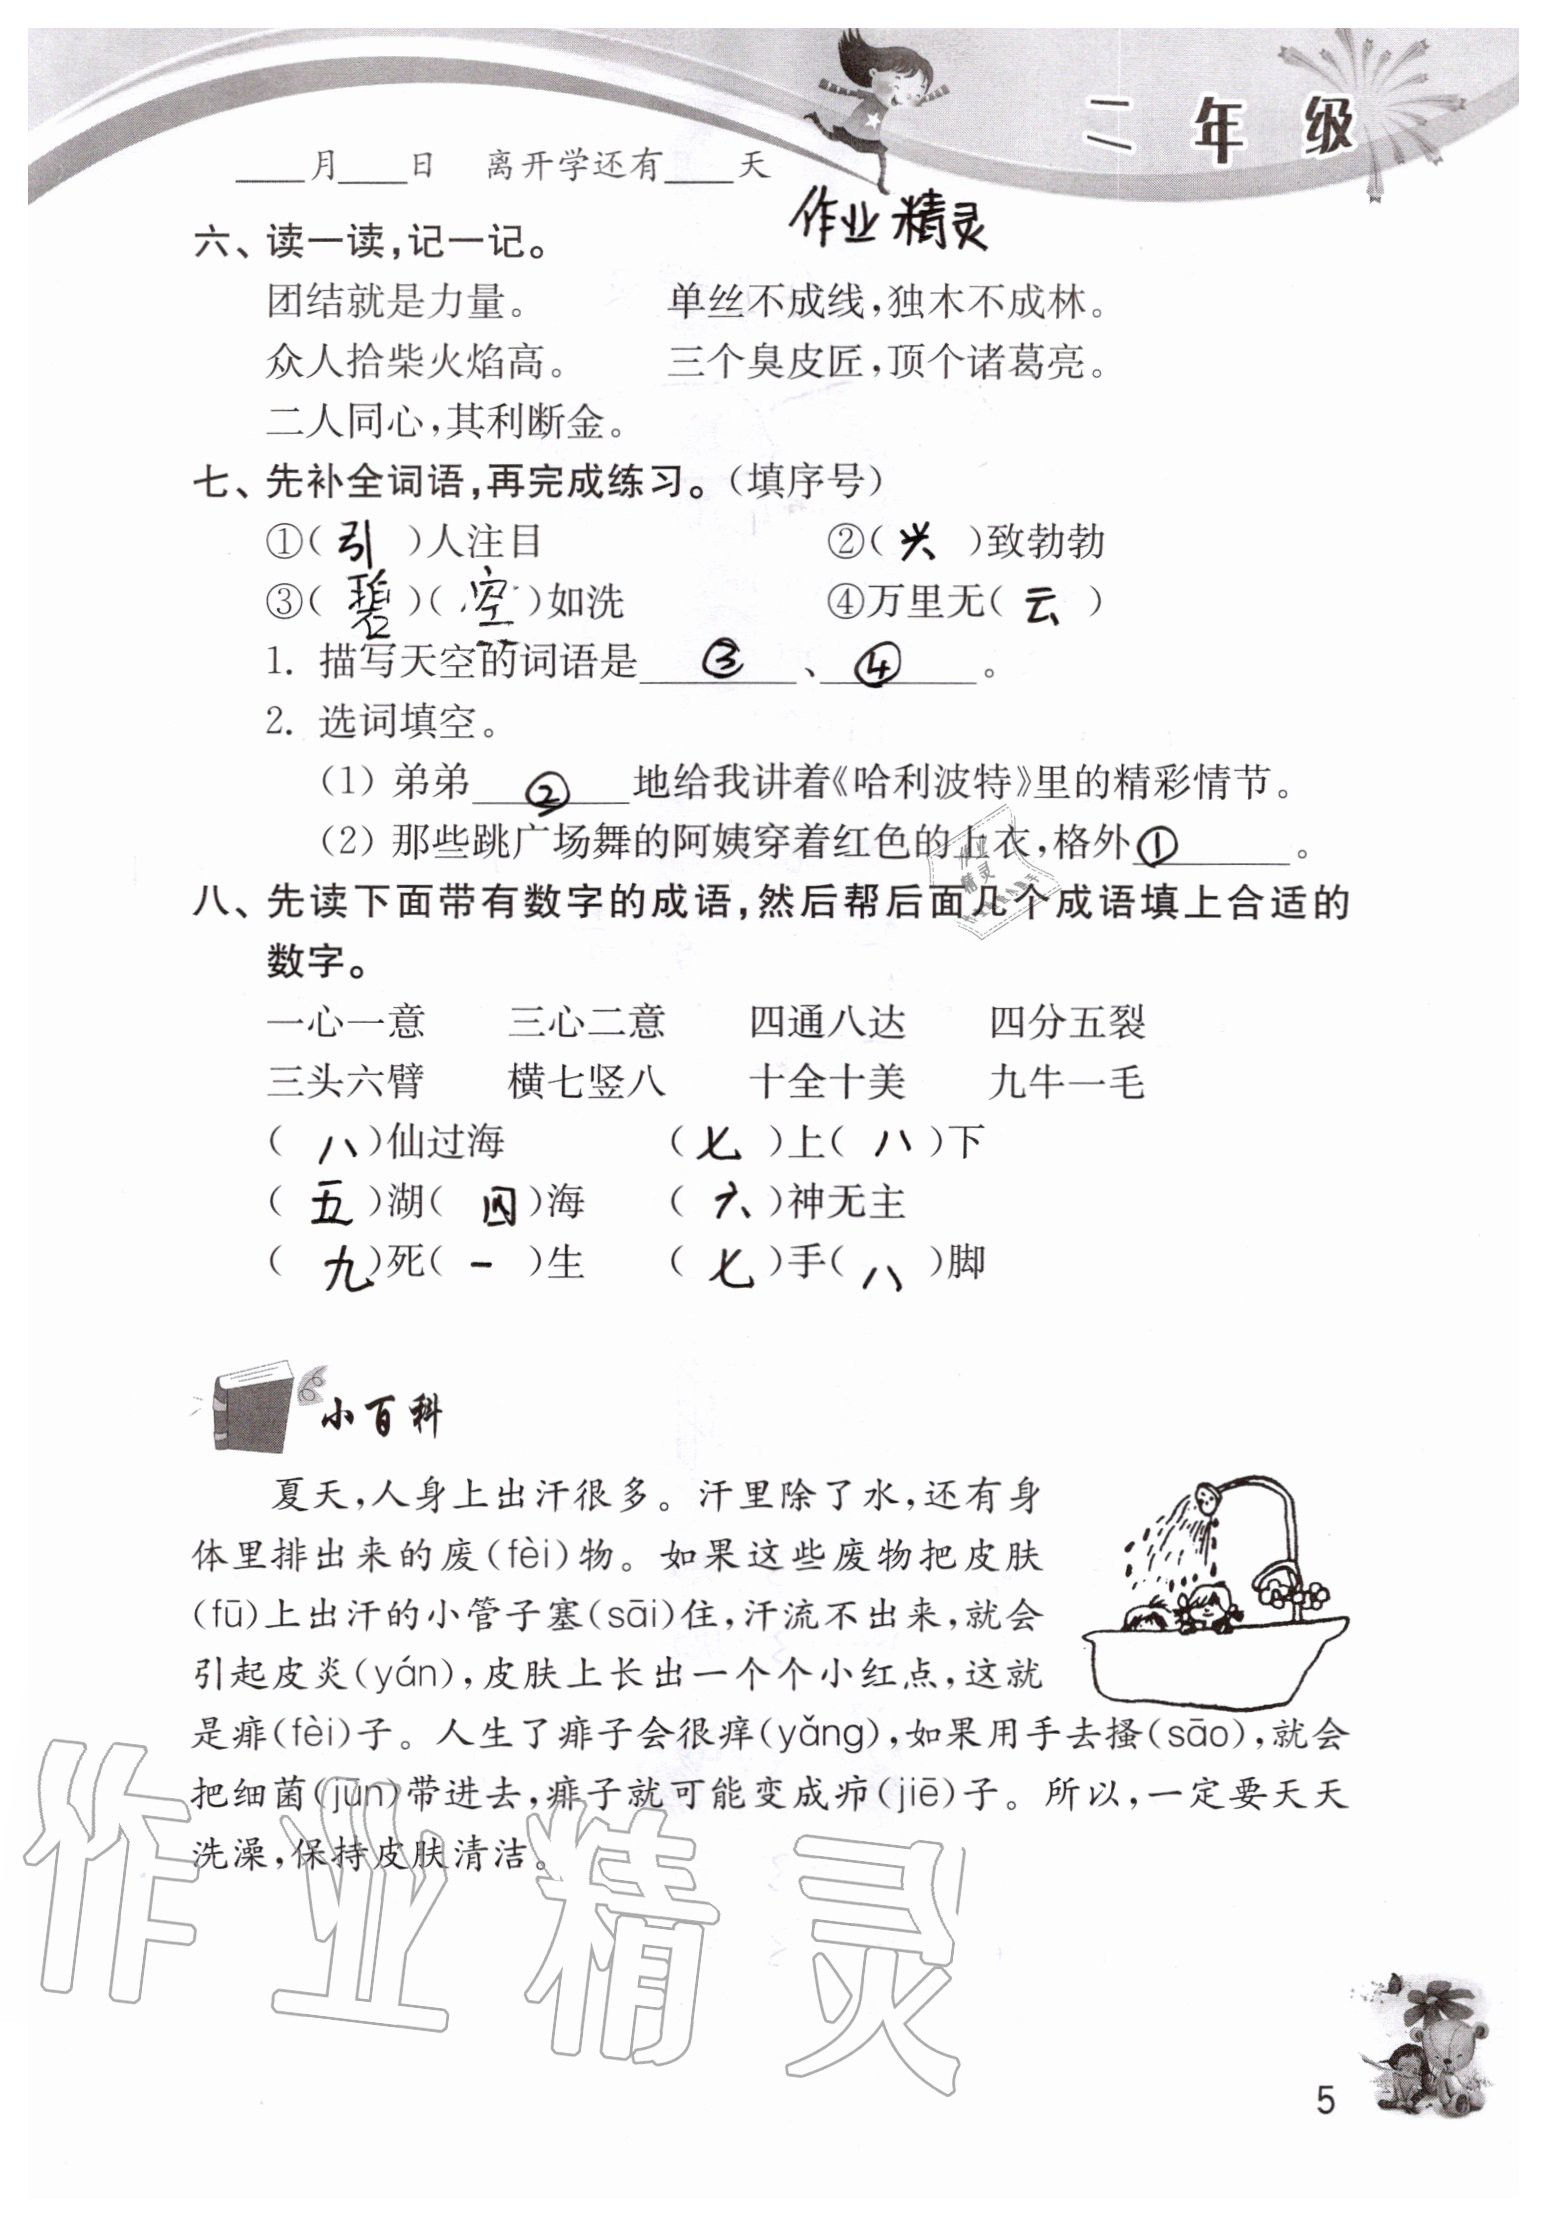 二年级
____月____日 离开学还有____天
作业精灵
六、读一读,记一记。
团结就是力量。 单丝不成线,独木不成林。
众人拾柴火焰高。 三个臭皮匠,顶个诸葛亮。
二人同心,其利断金。
七、先补全词语,再完成练习。(填序号)
①(引)人注目 ②(兴)致勃勃
③(碧)(空)如洗 ④万里无(云)
1. 描写天空的词语是③、④。
2. 选词填空。
(1) 弟弟②地给我讲着《哈利波特》里的精彩情节。
(2) 那些跳广场舞的阿姨穿着红色的上衣,格外①。
作业
精灵
八、先读下面带有数字的成语,然后帮后面几个成语填上合适的
数字。
一心一意 三心二意 四通八达 四分五裂
三头六臂 横七竖八 十全十美 九牛一毛
(八)仙过海 (七)上(八)下
(五)湖(四)海 (六)神无主
(九)死(一)生 (七)手(八)脚
小百科
夏天,人身上出汗很多。汗里除了水,还有身
体里排出来的废(fèi)物。如果这些废物把皮肤
(fū)上出汗的小管子塞(sāi)住,汗流不出来,就会
引起皮炎(yán),皮肤上长出一个个小红点,这就
是痱(fèi)子。人生了痱子会很痒(yǎng),如果用手去搔(sāo),就会
把细菌(jūn)带进去,痱子就可能变成疖(jiē)子。所以,一定要天天
洗澡,保持皮肤清洁。
作业精灵
5